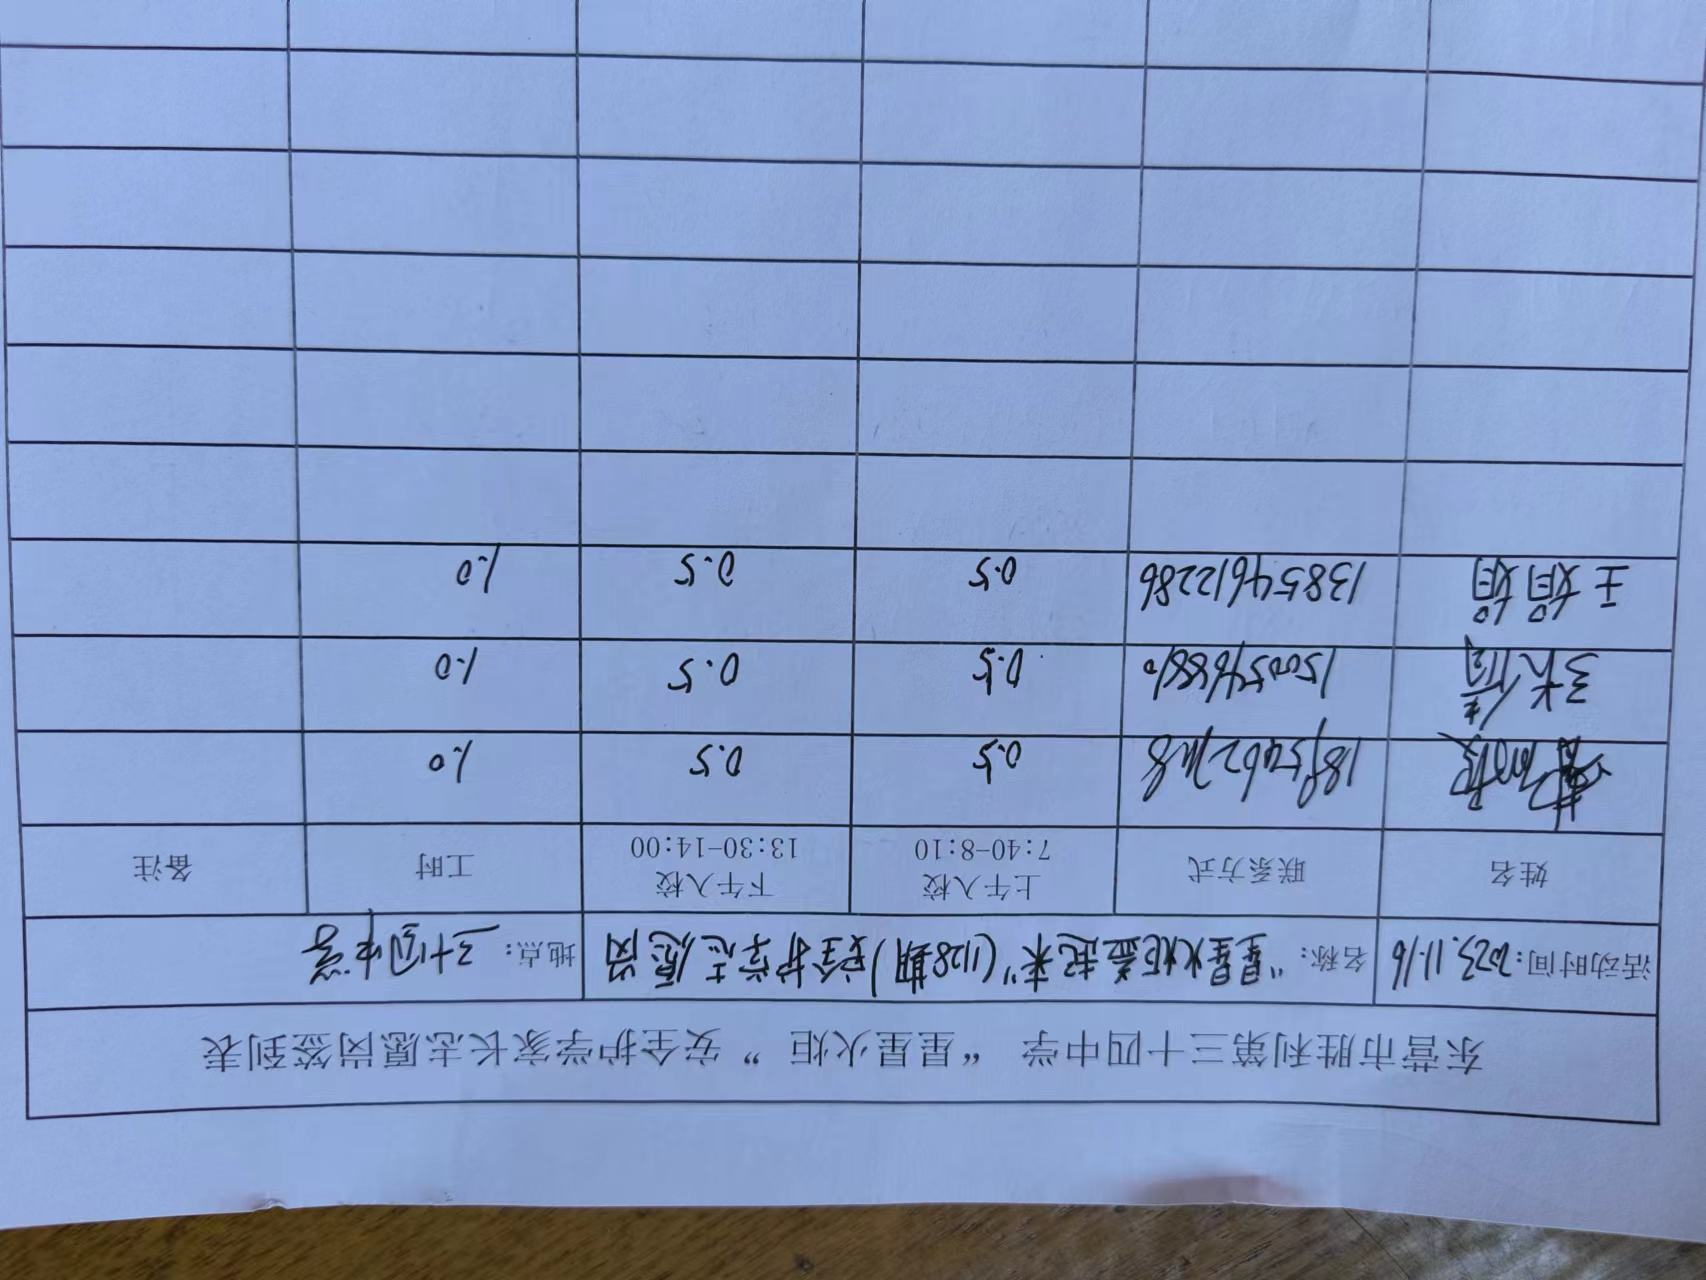 东营市胜利第三十四中学 “星星火炬” 安全护学家长志愿岗签到表
活动时间：2023.11.16 名称：“星星火炬益起来”(1128期)安全护学志愿岗 地点：三十四中学
姓名 联系方式 上午入校 7:40-8:10 下午入校 13:30-14:00 工时 备注
0.5 0.5 1.0
0.5 0.5 1.0
王娟娟 13854612286 0.5 0.5 1.0